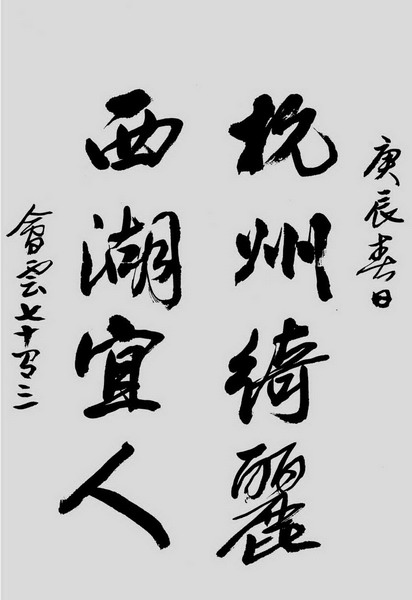 庚辰春日
杭州綺麗
西湖宜人
會雲七十有三